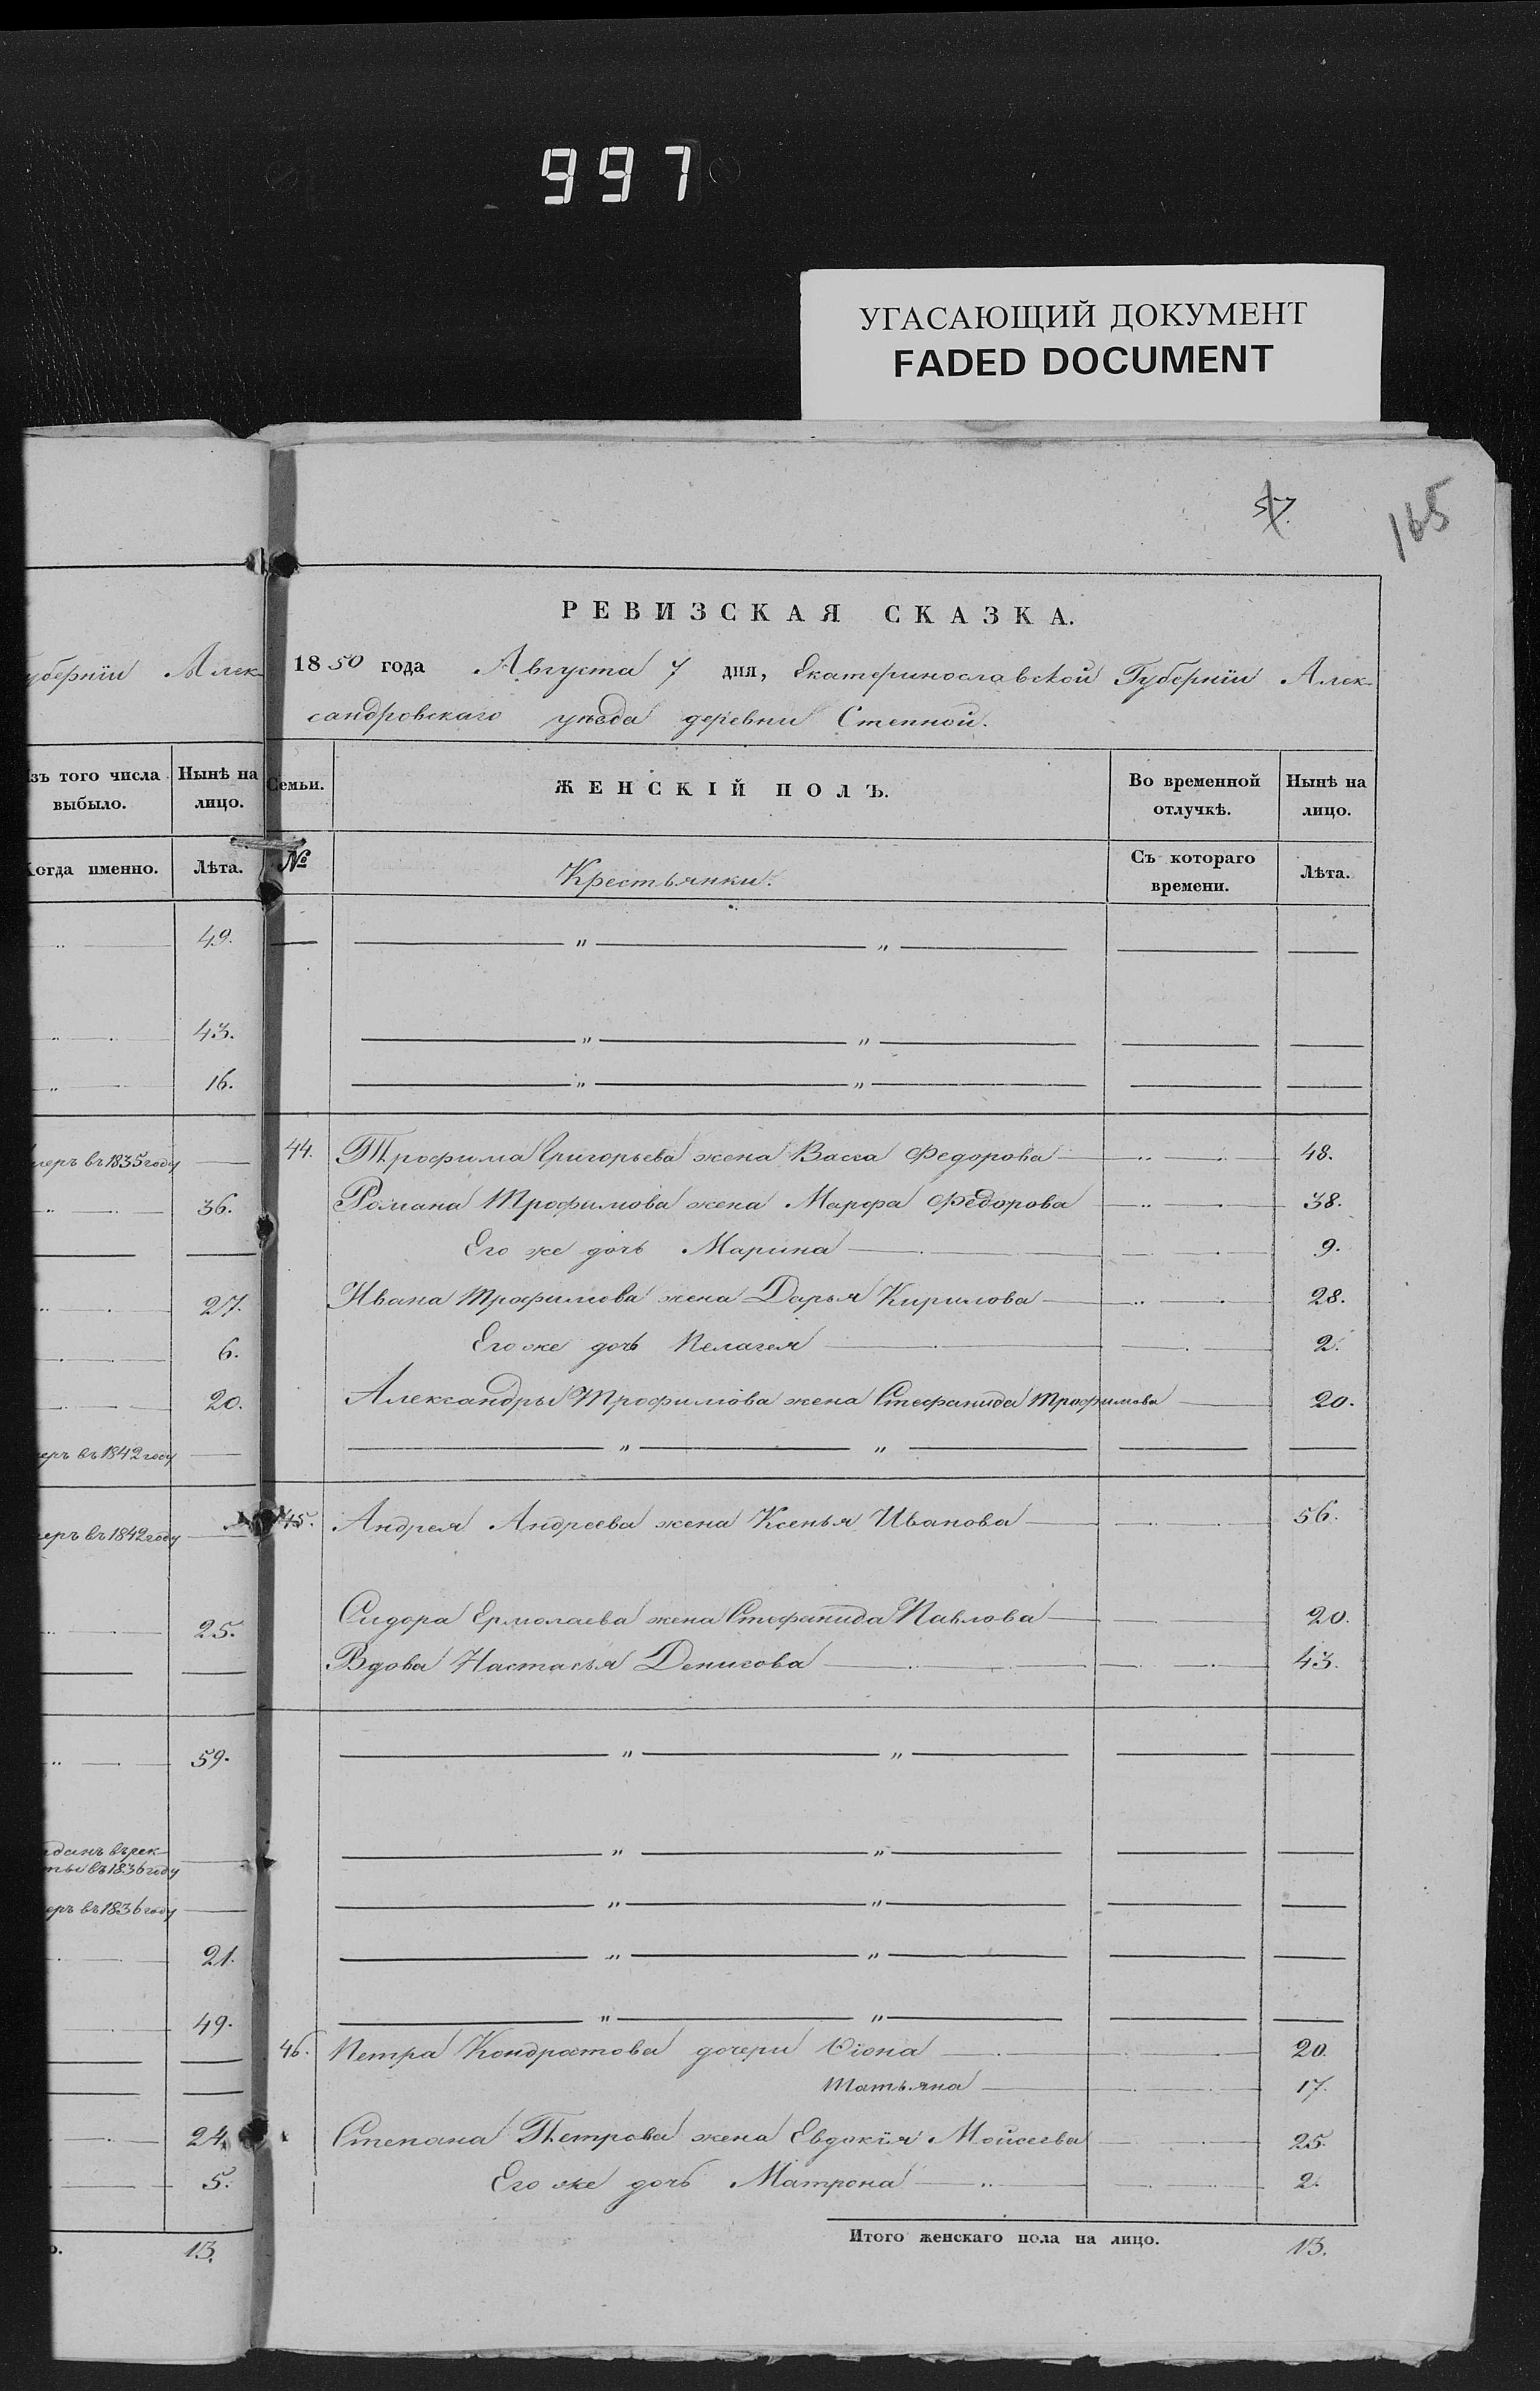 997
УГАСАЮЩИЙ ДОКУМЕНТ
FADED DOCUMENT
57.
165
уберніи Алек-
зъ того числа выбыло.
Нынѣ на лицо.
Когда именно.
Лѣта.
49.
43.
16.
меръ въ 1835 году
36.
27.
6.
20.
еръ въ 1842 году
еръ въ 1842 году
25.
59.
данъ въ рек-
ты въ 1836 году
еръ въ 1836 году
21.
49.
24.
5.
о. 13.
РЕВИЗСКАЯ СКАЗКА.
1850 года Августа 7 дня, Екатеринославской Губерніи Алек-
сандровскаго уѣзда деревни Степной.
Семьи.
ЖЕНСКІЙ ПОЛЪ.
Во временной отлучкѣ.
Нынѣ на лицо.
№
Крестьянки.
Съ котораго времени.
Лѣта.
— " — " —
— " — " —
— " — " —
44. Трофима Григорьева жена Васса Федорова 48.
Романа Трофимова жена Марфа Федорова 38.
Его же дочь Марина 9.
Ивана Трофимова жена Дарья Кирилова 28.
Его же дочь Пелагея 2.
Александры Трофимова жена Стефанида Трофимова 20.
— " — " —
45. Андрея Андреева жена Ксенья Иванова 56.
Сидора Ермолаева жена Стефанида Павлова 20.
Вдова Настасья Денисова 43.
— " — " —
— " — " —
— " — " —
— " — " —
— " — " —
46. Петра Кондратова дочери 20.
Татьяна 17.
Степана Петрова жена Евдокія Моисеева 25.
Его же дочь Матрона 2.
Итого женскаго пола на лицо. 13.